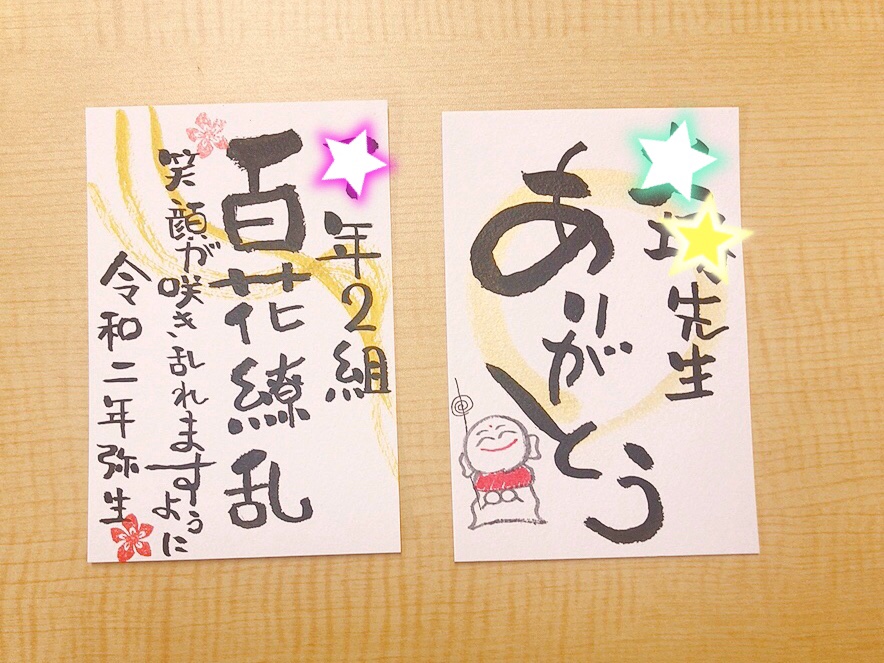 年2組
百花繚乱
笑顔が咲き乱れますように
令和二年弥生
先生
ありがとう